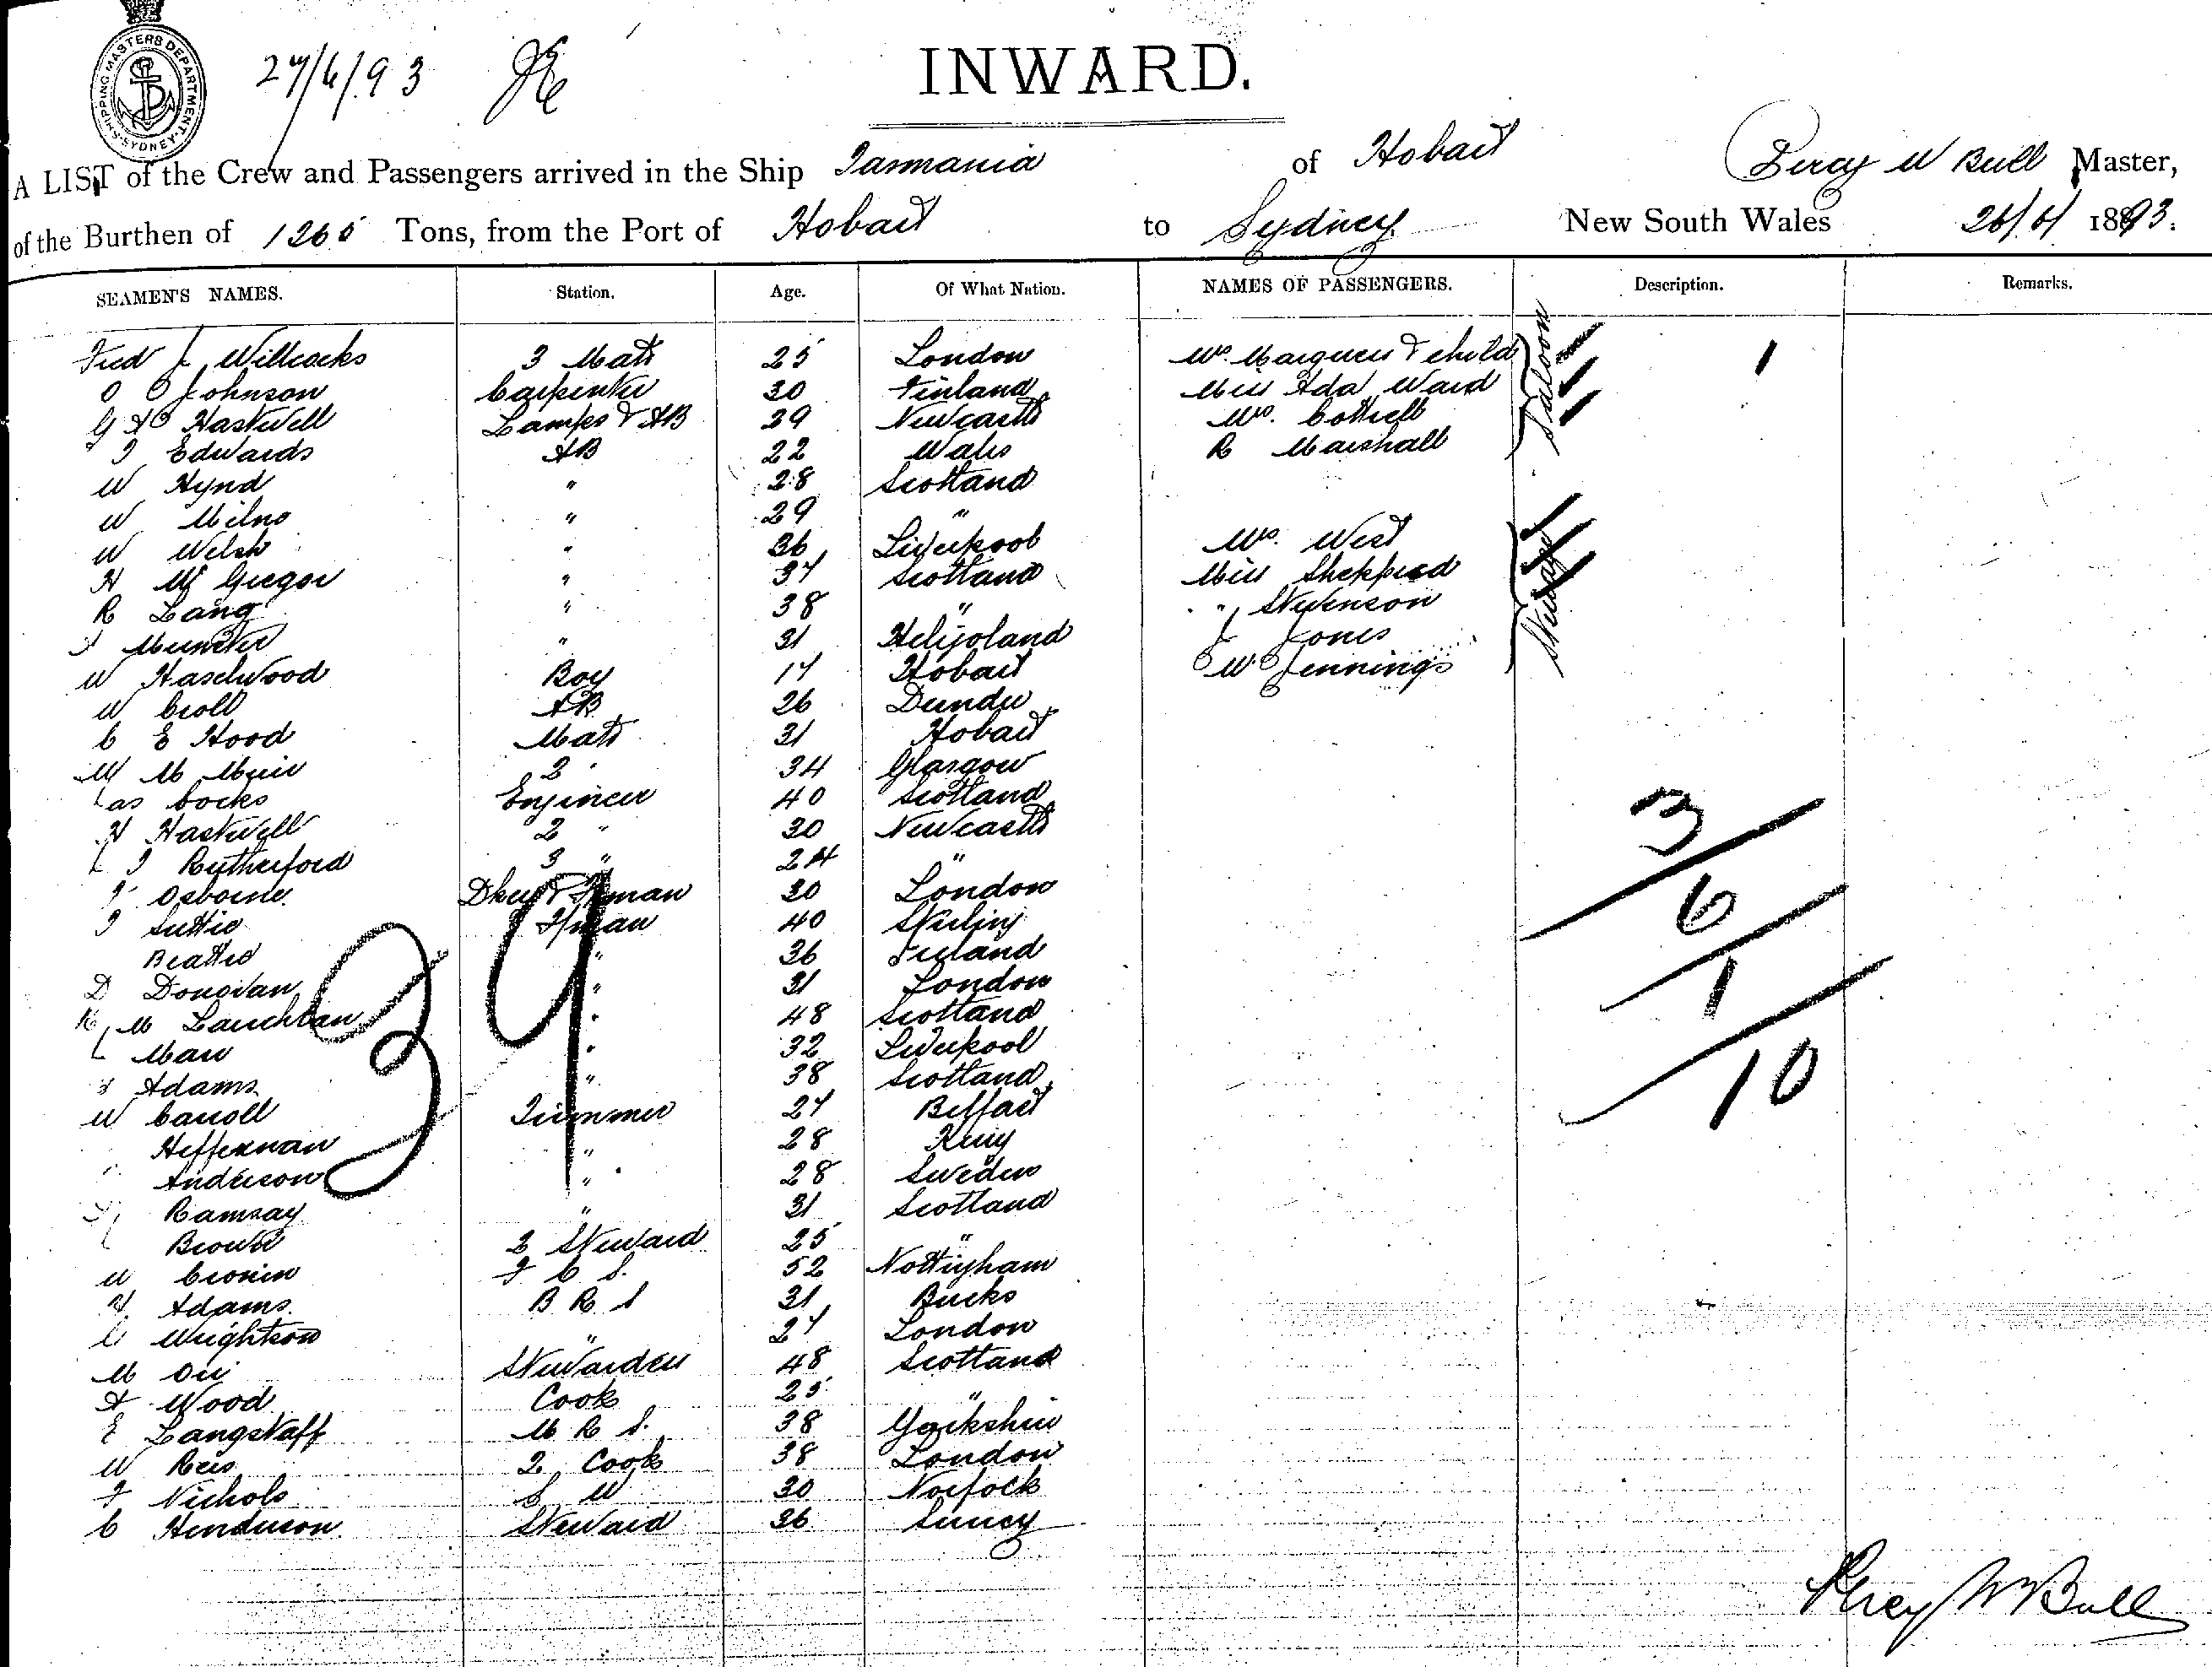 SHIPPING MASTERS DEPARTMENT SYDNEY
27/6/93
INWARD.
A LIST of the Crew and Passengers arrived in the Ship Tasmania of Hobart Percy W Bull Master,
of the Burthen of Tons, from the Port of Hobart to Sydney New South Wales 26/6/ 1893.
SEAMEN'S NAMES. Station. Age. Of What Nation. NAMES OF PASSENGERS. Description. Remarks.
Fred J Willcocks 3 Mate 25 London Mrs. & child Saloon 1
O Johnson Carpenter 30 Finland Miss Ada Ward
G H Haswell Lamps & AB 39 Newcastle Mrs. Cottrell
T Edwards AB 22 Wales R Marshall
W Hynd " 28 Scotland
W Milne " 29 "
W Welsh " 36 Liverpool Mrs. West Steerage
H McGregor " 37 Scotland Miss Sheppard
R Lang " 38 " " Stevenson
Munster " 31 Heligoland J Jones
W Haselwood Boy 17 Hobart W Jennings
W Croll AB 26 Dundee
C E Hood Mate 31 Hobart
M Muir 2 " 34 Glasgow
Jas Cocks Engineer 40 Scotland 3
H Haswell 2 " 30 Newcastle
J T Rutherford 3 " 24 " 6
Osborne 30 London
T Suttie Fman 40 Stirling
Beattie " 36 Ireland
D Donovan " 31 London 1
Lauchlan " 48 Scotland
J Maw " 32 Liverpool 10
Adams " 38 Scotland
W Carroll Trimmer 27 Belfast
Heffernan " 28 Kerry
Anderson " 28 Sweden
Ramsay " 31 Scotland
Brown 2 Steward 25 "
W Cronin F C S. 52 Nottigham
H Adams B R S 31 Bucks
C Wrightson " 27 London
M Orr Stewardess 48 Scotland
A Wood Cook 25 "
E Langstaff M R S. 38 Yorkshire
W Rees 2 Cook 38 London
F Nichols S W 30 Norfock
C Henderson Steward 36 Surrey
39
Percy W Bull